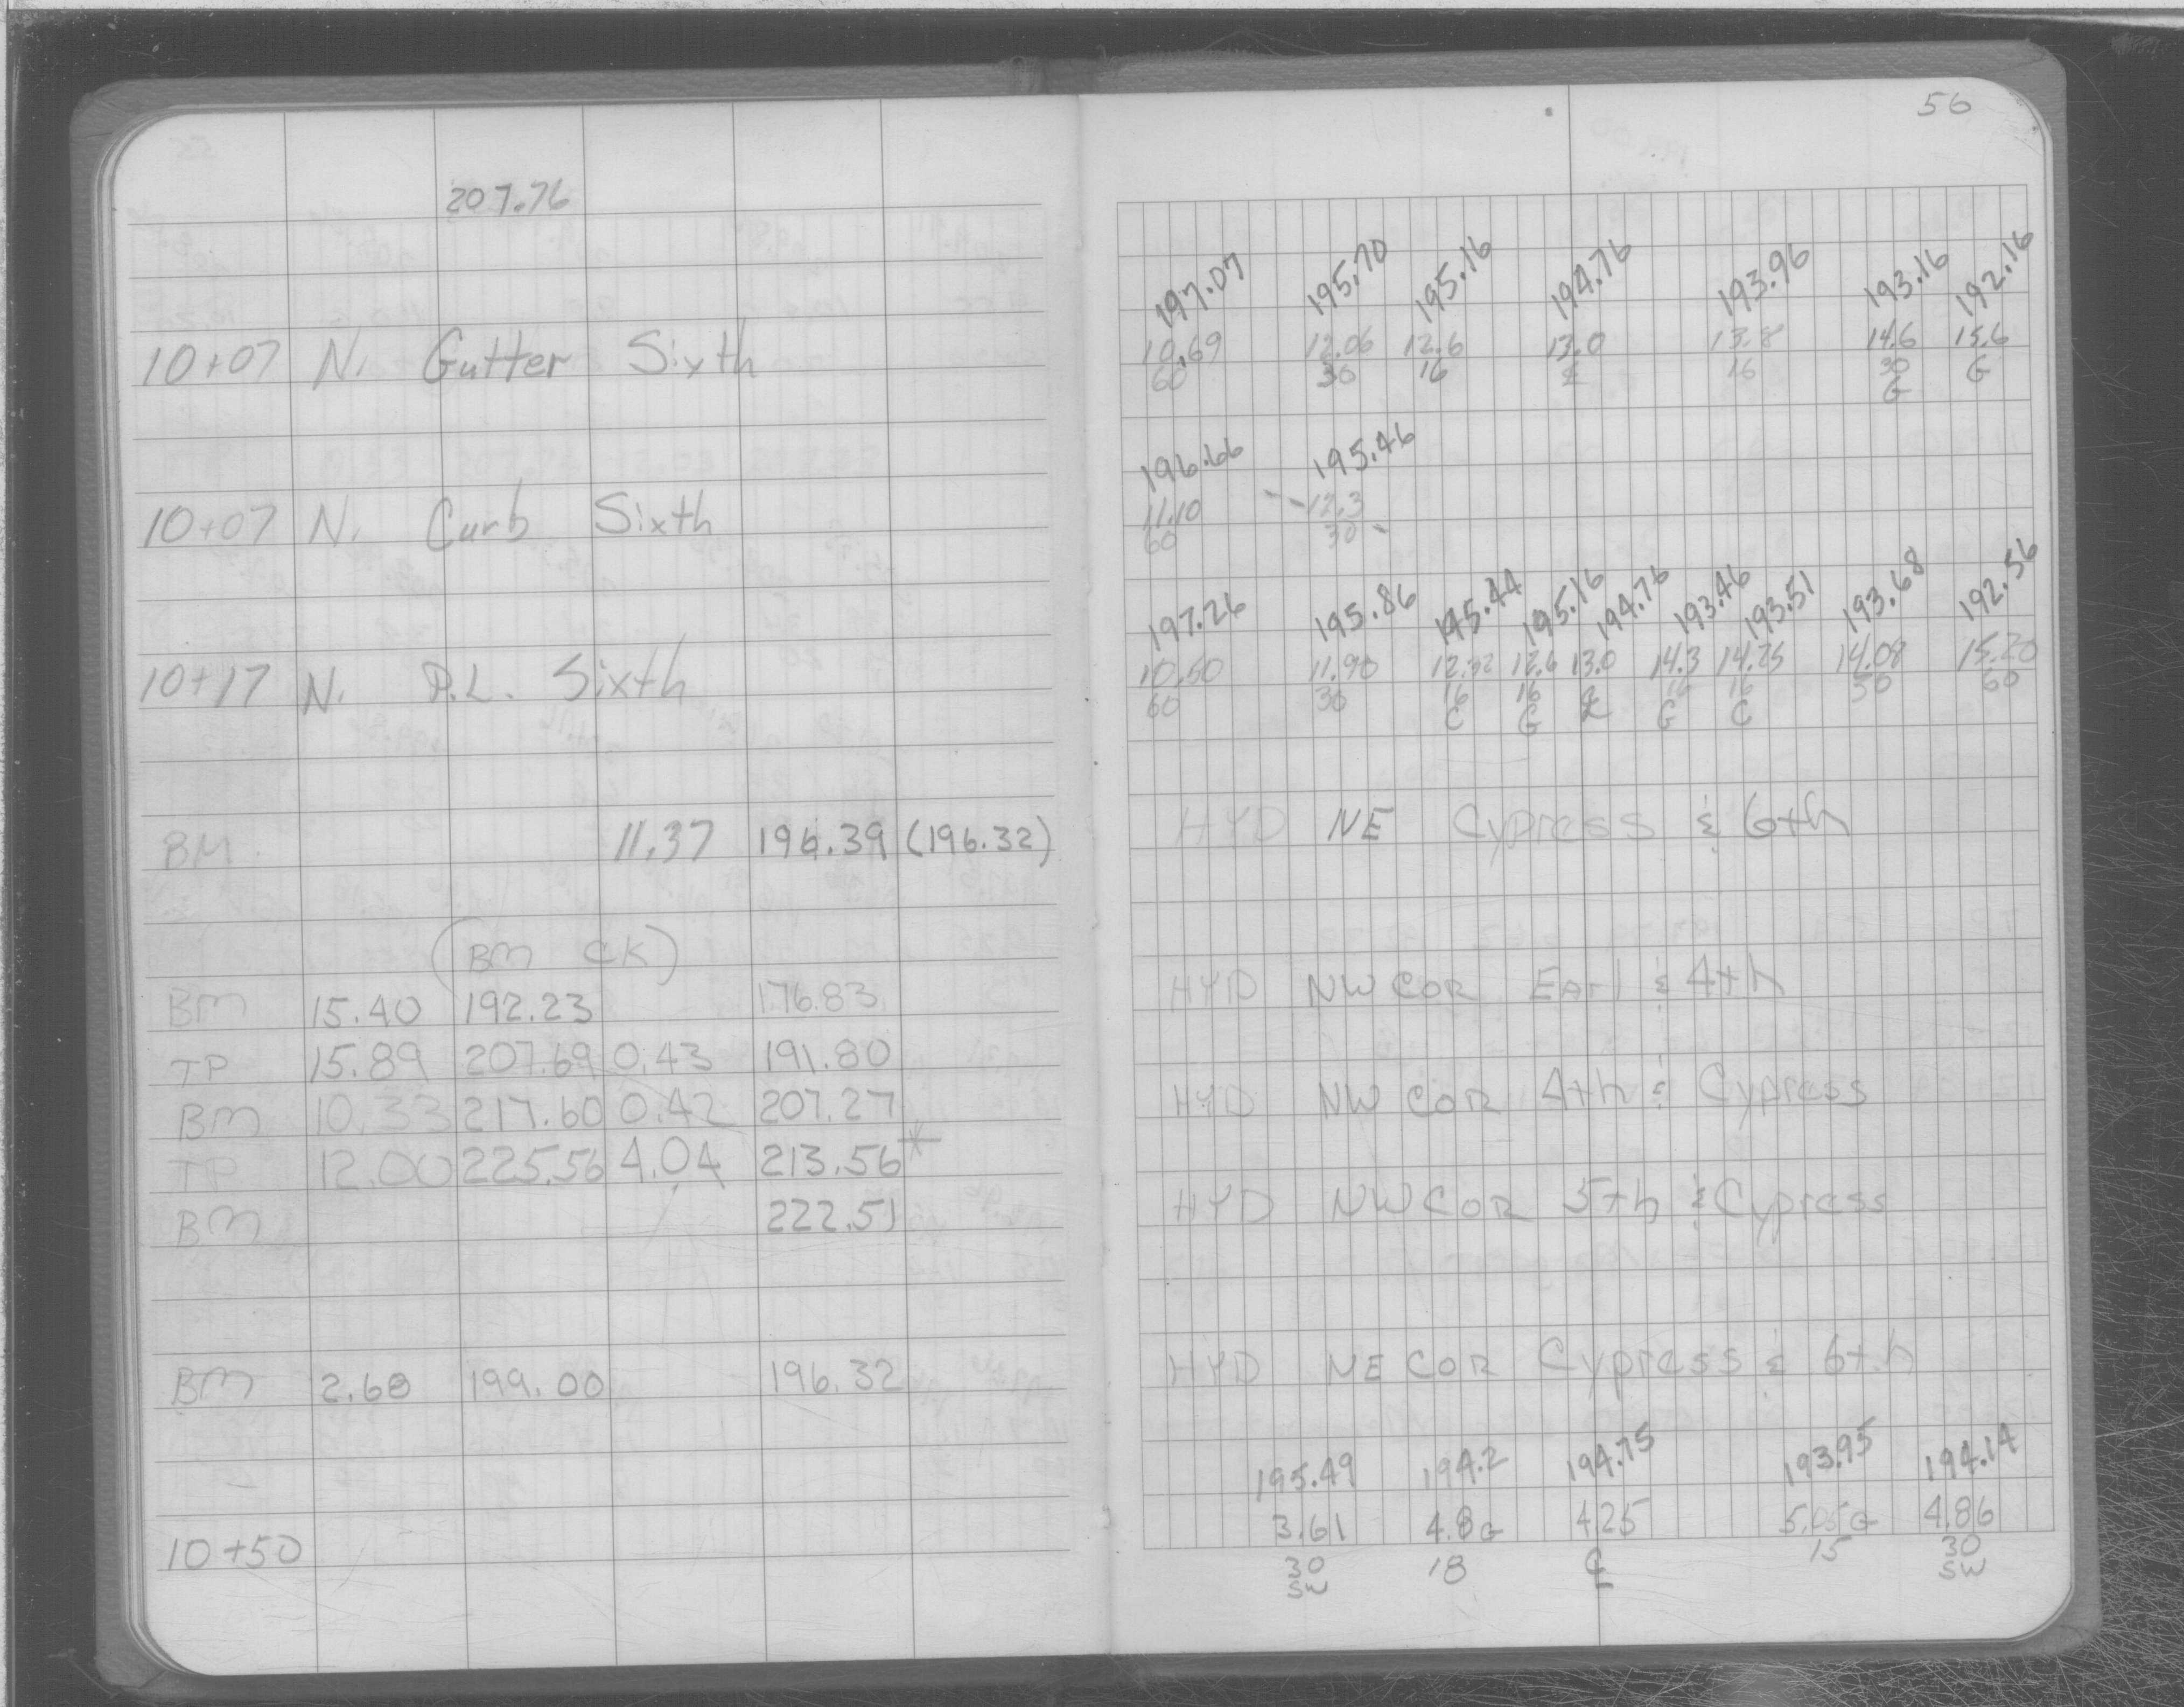 56
207.76
197.07 195.70 195.16 194.76 193.96 193.16 192.16
10+07 N. Gutter Sixth 10.69 12.06 12.6 13.0 13.8 14.6 15.6
60 30 16 ℄ 16 30 G
G
196.66 195.46
10+07 N. Curb Sixth 11.10 12.3
60 30
197.26 195.86 195.44 195.16 194.76 193.46 193.51 193.68 192.56
10+17 N. P.L. Sixth 10.50 11.90 12.32 12.6 13.0 14.3 14.25 14.08 15.20
60 30 16 16 ℄ 16 16 30 60
C G G C
BM 11.37 196.39 (196.32) HYD NE Cypress & 6th
(BM CK)
BM 15.40 192.23 176.83 HYD NW COR Earl & 4th
TP 15.89 207.69 0.43 191.80
BM 10.33 217.60 0.42 207.27 HYD NW COR 4th & Cypress
TP 12.00 225.56 4.04 213.56*
BM 222.51 HYD NW COR 5th & Cypress
BM 2.68 199.00 196.32 HYD NE COR Cypress & 6th
195.49 194.2 194.75 193.95 194.14
10+50 3.61 4.8G 4.25 5.05G 4.86
30 18 ℄ 15 30
SW SW